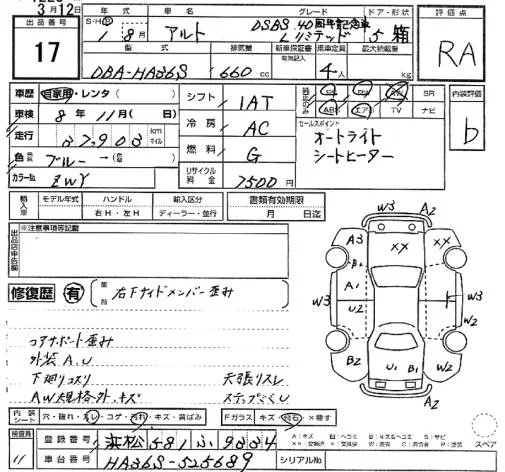 3月12日
出品番号
17
年式 車名 グレード ドア・形状
S・H・R 1年 8月 アルト DSBS 40周年記念車 Lリミテッド 5 箱
評価点
RA
型式 排気量 新車保証書 乗車定員 最大積載量
DBA-HA36S 660 cc 有無記入 4人 kg
車歴 自家用・レンタ ( )
シフト 1AT
PS PW SR
ABS エアB TV ナビ
内装評価
b
車検 8年 11月( 日)
冷房 AC
セールスポイント
オートライト
シートヒーター
走行 37903 km マイル
燃料 G
色 ブルー →(色替)
リサイクル料金 7500円
カラーNo. ZWY
輸入車 モデル年式 ハンドル 輸入区分
右H・左H ディーラー・並行
書類有効期限
月 日迄
出品店申告欄
※注意事項等記載
修復歴 有 箇所 右フサイドメンバー歪み
コアサポート歪み
外装A.U
下廻りコスリ 天張りスレ
AW規格外・キズ ステップぐくU
W3 A2
A3 XX
B1
A1
W3 U2 W3
W2
B2 U1 B1 W2
W3 A2
内装シート 穴・破れ・スレ・コゲ・汚れ・キズ・黄ばみ
Fガラス キズ・飛石・×要す
A:キズ U:ヘコミ B:キズ&ヘコミ S:サビ
スペア
検査員
11
登録番号 浜松 581 ふ 9334
車台番号 HA36S-525689
シリアルNo.